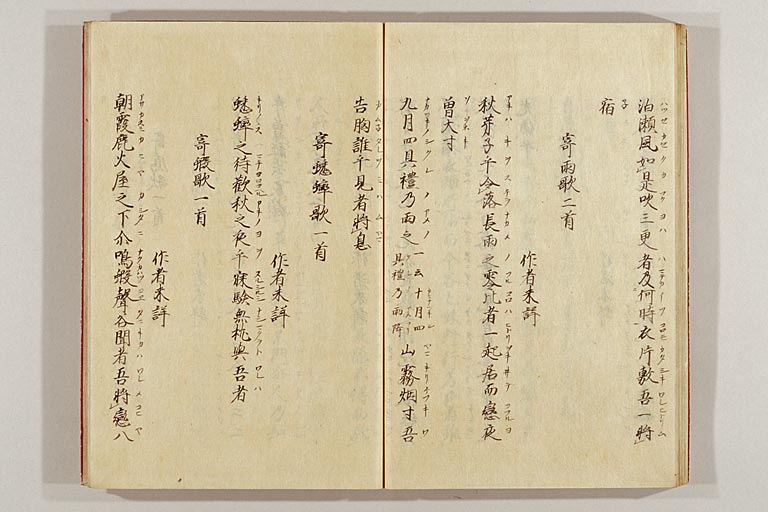 泊瀬風如是吹三更者及何時衣片敷吾一将
宿
寄雨歌二首
作者未詳
秋芽子乎令落長雨之零比者一起居而戀夜
曽大寸
九月四具禮乃雨之 一云十月四具禮乃雨降 山霧烟寸吾
告胸誰乎見者将息
寄蟋蟀歌一首
作者未詳
蟋蟀之待歡秋之夜乎寐驗無枕與吾者
寄蝦歌一首
作者未詳
朝霞鹿火屋之下尓鳴蝦聲谷聞者吾将戀八